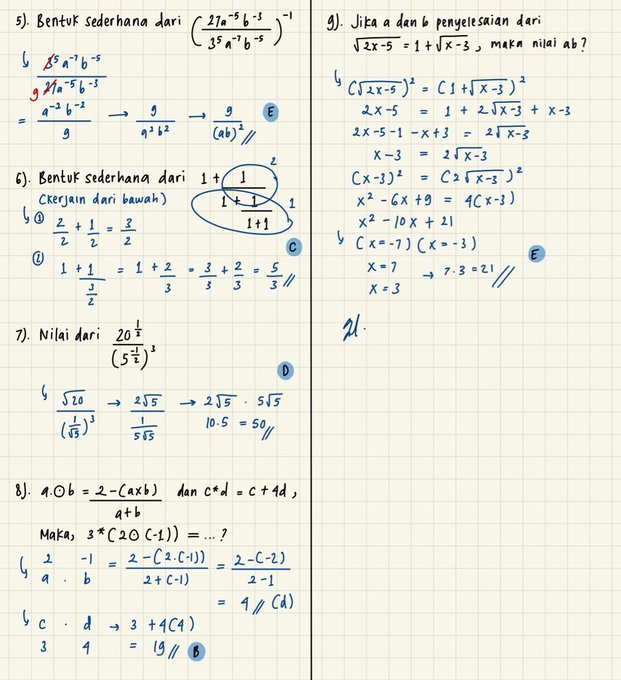 5). Bentuk sederhana dari (27a⁻⁵b⁻³ / 3⁵a⁻⁷b⁻⁵)⁻¹
↳ 3⁵a⁻⁷b⁻⁵ / 27a⁻⁵b⁻³
9
= a⁻²b⁻² / 9 → 9 / a²b² → 9 / (ab)² //
E
6). Bentuk sederhana dari 1 + 1 / (1 + 1 / (1+1))
2
1
(kerjain dari bawah)
↳ ① 2/2 + 1/2 = 3/2
C
② 1 + 1 / (3/2) = 1 + 2/3 = 3/3 + 2/3 = 5/3 //
7). Nilai dari 20^(1/2) / (5^(-1/2))³
D
↳ √20 / (1/√5)³ → 2√5 / (1 / 5√5) → 2√5 . 5√5
10.5 = 50 //
8). a⊙b = 2-(axb) / a+b dan c*d = c + 4d,
Maka, 3*(2⊙(-1)) = ...?
↳ 2 -1 = 2-(2.(-1)) / 2+(-1) = 2-(-2) / 2-1
a . b
= 4 // (d)
↳ c . d → 3 + 4(4)
3 4 = 19 // B
9). Jika a dan b penyelesaian dari
√2x-5 = 1 + √x-3, maka nilai ab?
↳ (√2x-5)² = (1+√x-3)²
2x-5 = 1 + 2√x-3 + x-3
2x-5-1-x+3 = 2√x-3
x-3 = 2√x-3
(x-3)² = (2√x-3)²
x² - 6x + 9 = 4(x-3)
x² - 10x + 21
↳ (x=-7) (x=-3)
E
x = 7 → 7.3 = 21 //
x = 3
21.